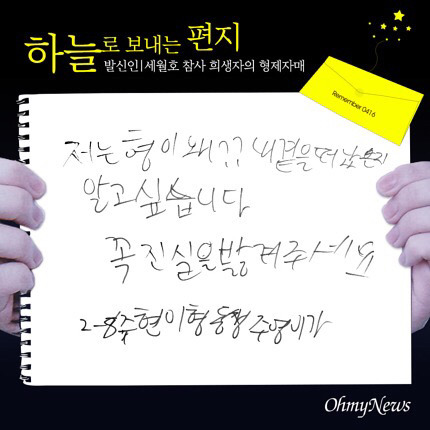 하늘로 보내는 편지
발신인|세월호 참사 희생자의 형제자매
Remember 0416
저는 형이 왜?? 내곁을 떠났는지
알고싶습니다
꼭 진실을 밝혀주세요
2-8 주현이형 동생 주영이가
OhmyNews